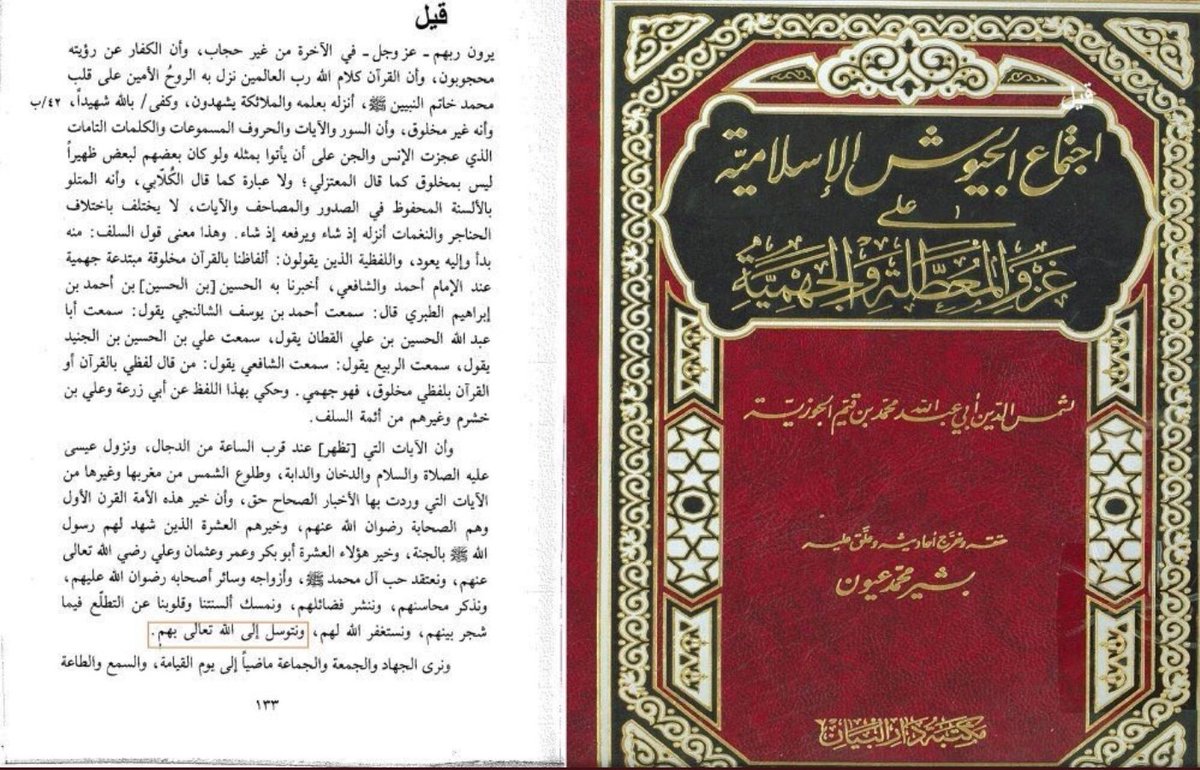 قيل
يرون ربهم ـ عز وجل ـ في الآخرة من غير حجاب، وأن الكفار عن رؤيته
محجوبون، وأن القرآن كلام الله رب العالمين نزل به الروحُ الأمين على قلب
محمد خاتم النبيين ﷺ، أنزله بعلمه والملائكة يشهدون، وكفى/ بالله شهيداً، ٤٢/ب
وأنه غير مخلوق، وأن السور والآيات والحروف المسموعات والكلمات التامات
الذي عجزت الإنس والجن على أن يأتوا بمثله ولو كان بعضهم لبعض ظهيراً
ليس بمخلوق كما قال المعتزلي؛ ولا عبارة كما قال الكُلّابي، وأنه المتلو
بالألسنة المحفوظ في الصدور والمصاحف والآيات، لا يختلف باختلاف
الحناجر والنغمات أنزله إذ شاء ويرفعه إذ شاء. وهذا معنى قول السلف: منه
بدأ وإليه يعود، واللفظية الذين يقولون: ألفاظنا بالقرآن مخلوقة مبتدعة جهمية
عند الإمام أحمد والشافعي، أخبرنا به الحسين [بن الحسين] بن أحمد بن
إبراهيم الطبري قال: سمعت أحمد بن يوسف الشالنجي يقول: سمعت أبا
عبد الله الحسين بن علي القطان يقول، سمعت علي بن الحسين بن الجنيد
يقول، سمعت الربيع يقول: سمعت الشافعي يقول: من قال لفظي بالقرآن أو
القرآن بلفظي مخلوق، فهو جهمي. وحكي بهذا اللفظ عن أبي زرعة وعلي بن
خشرم وغيرهم من أئمة السلف.
وأن الآيات التي [تظهر] عند قرب الساعة من الدجال، ونزول عيسى
عليه الصلاة والسلام والدخان والدابة، وطلوع الشمس من مغربها وغيرها من
الآيات التي وردت بها الأخبار الصحاح حق، وأن خير هذه الأمة القرن الأول
وهم الصحابة رضوان الله عنهم، وخيرهم العشرة الذين شهد لهم رسول
الله ﷺ بالجنة، وخير هؤلاء العشرة أبو بكر وعمر وعثمان وعلي رضي الله تعالى
عنهم، ونعتقد حب آل محمد ﷺ، وأزواجه وسائر أصحابه رضوان الله عليهم،
ونذكر محاسنهم، وننشر فضائلهم، ونمسك ألسنتنا وقلوبنا عن التطلّع فيما
شجر بينهم، ونستغفر الله لهم، ونتوسل إلى الله تعالى بهم.
ونرى الجهاد والجمعة والجماعة ماضياً إلى يوم القيامة، والسمع والطاعة
١٣٣
قيل
اجتماع الجيوش الإسلامية
على
غزو المعطلة والجهمية
لشمس الدين أبي عبد الله محمد بن قيم الجوزية
حققه وخرج أحاديثه وعلق عليه
بشير محمد عيون
مكتبة دار البيان